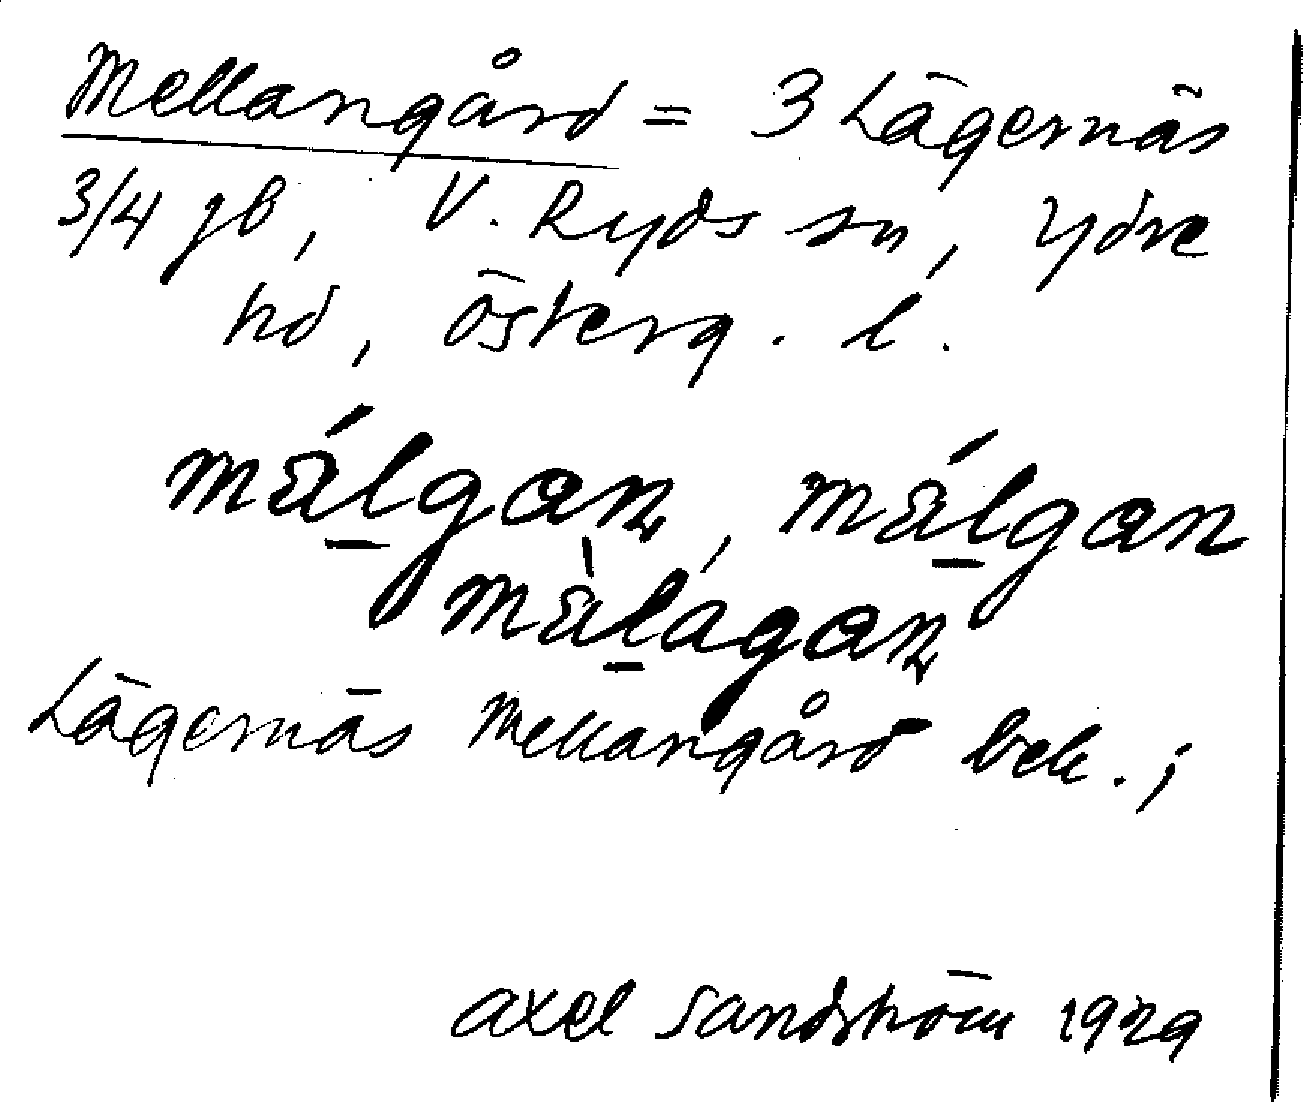 Mellangård = 3 Lägernäs
3/4 gb, V. Ryds sn, Ydre
hd, Österg. l.
málgan, málgan
màlagan
Lägernäs Mellangård bek.;
Axel Sandström 1929